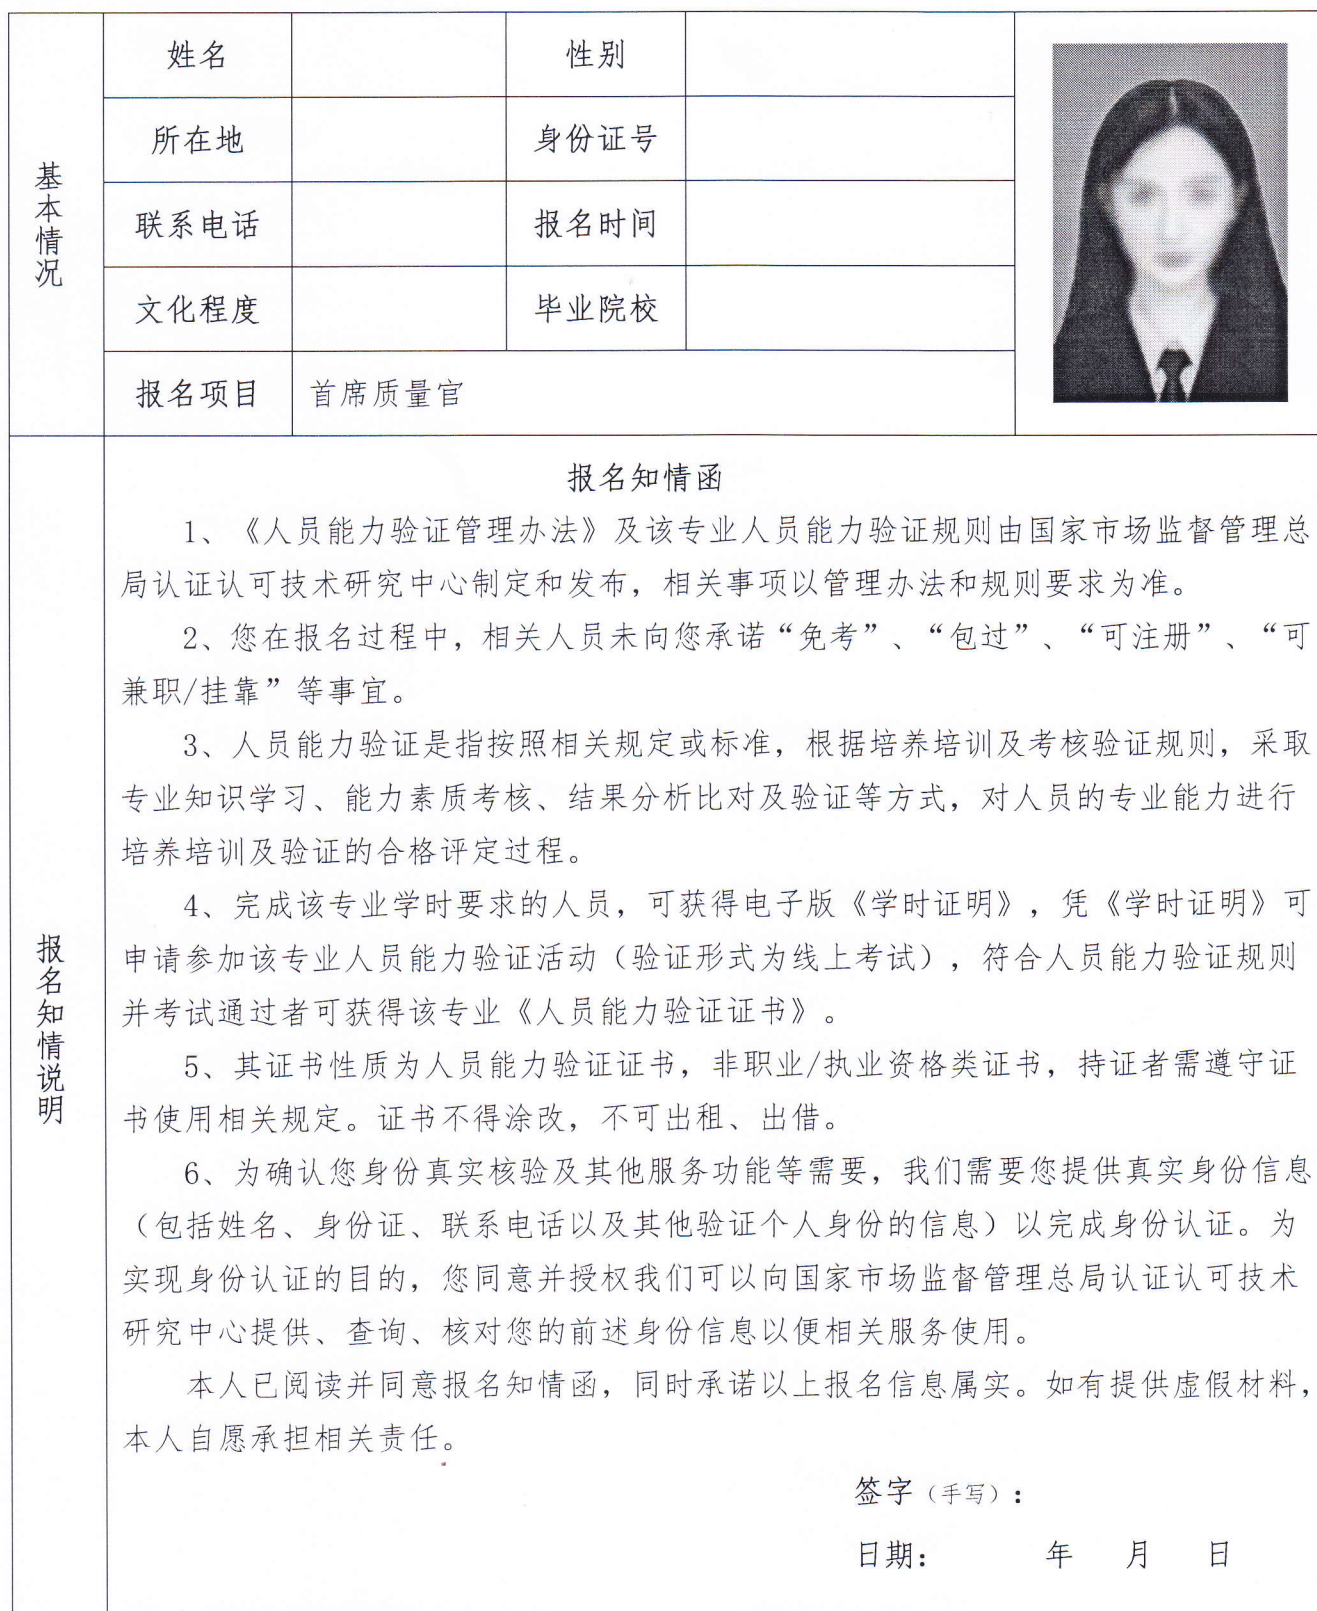 姓名 性别
所在地 身份证号
基本情况
联系电话 报名时间
文化程度 毕业院校
报名项目 首席质量官
报名知情说明
报名知情函
1、《人员能力验证管理办法》及该专业人员能力验证规则由国家市场监督管理总
局认证认可技术研究中心制定和发布，相关事项以管理办法和规则要求为准。
2、您在报名过程中，相关人员未向您承诺“免考”、“包过”、“可注册”、“可
兼职/挂靠”等事宜。
3、人员能力验证是指按照相关规定或标准，根据培养培训及考核验证规则，采取
专业知识学习、能力素质考核、结果分析比对及验证等方式，对人员的专业能力进行
培养培训及验证的合格评定过程。
4、完成该专业学时要求的人员，可获得电子版《学时证明》，凭《学时证明》可
申请参加该专业人员能力验证活动（验证形式为线上考试），符合人员能力验证规则
并考试通过者可获得该专业《人员能力验证证书》。
5、其证书性质为人员能力验证证书，非职业/执业资格类证书，持证者需遵守证
书使用相关规定。证书不得涂改，不可出租、出借。
6、为确认您身份真实核验及其他服务功能等需要，我们需要您提供真实身份信息
（包括姓名、身份证、联系电话以及其他验证个人身份的信息）以完成身份认证。为
实现身份认证的目的，您同意并授权我们可以向国家市场监督管理总局认证认可技术
研究中心提供、查询、核对您的前述身份信息以便相关服务使用。
本人已阅读并同意报名知情函，同时承诺以上报名信息属实。如有提供虚假材料，
本人自愿承担相关责任。
签字（手写）：
日期： 年 月 日